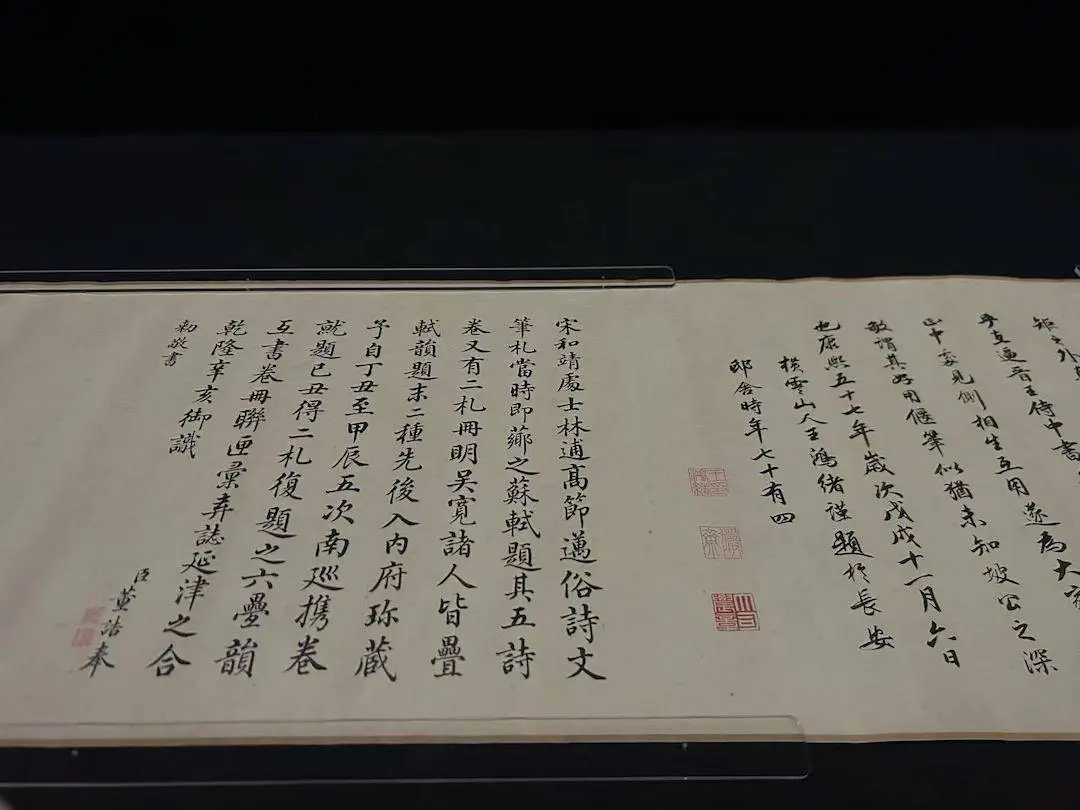 矩之外
乎直逼晉王侍中書
相生互用遂為大
山中
敬謂其好用偃筆似猶未知坡公之深
也康熙五十七年歲次戊戌十一月六日
橫雲山人王鴻緒謹題於長安
邸舍時年七十有四
宋和靖處士林逋高節邁俗詩文
筆札當時即薌之蘇軾題其五詩
卷又有二札冊明吳寬諸人皆疊
軾韻題末二種先後入內府珎藏
予自丁丑至甲辰五次南廵攜卷
就題已丑得二札復題之六疊韻
互書卷冊聯匣彙弆誌延津之合
乾隆辛亥御識
臣董誥奉
勅敬書